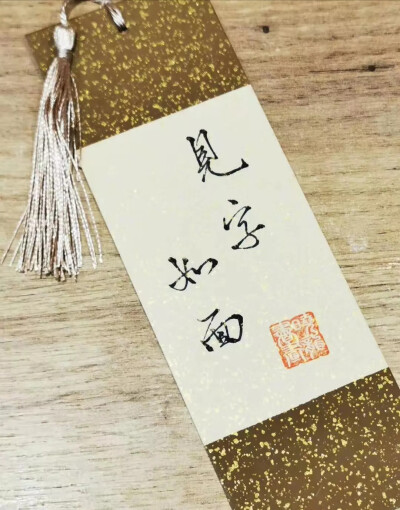 見字如面